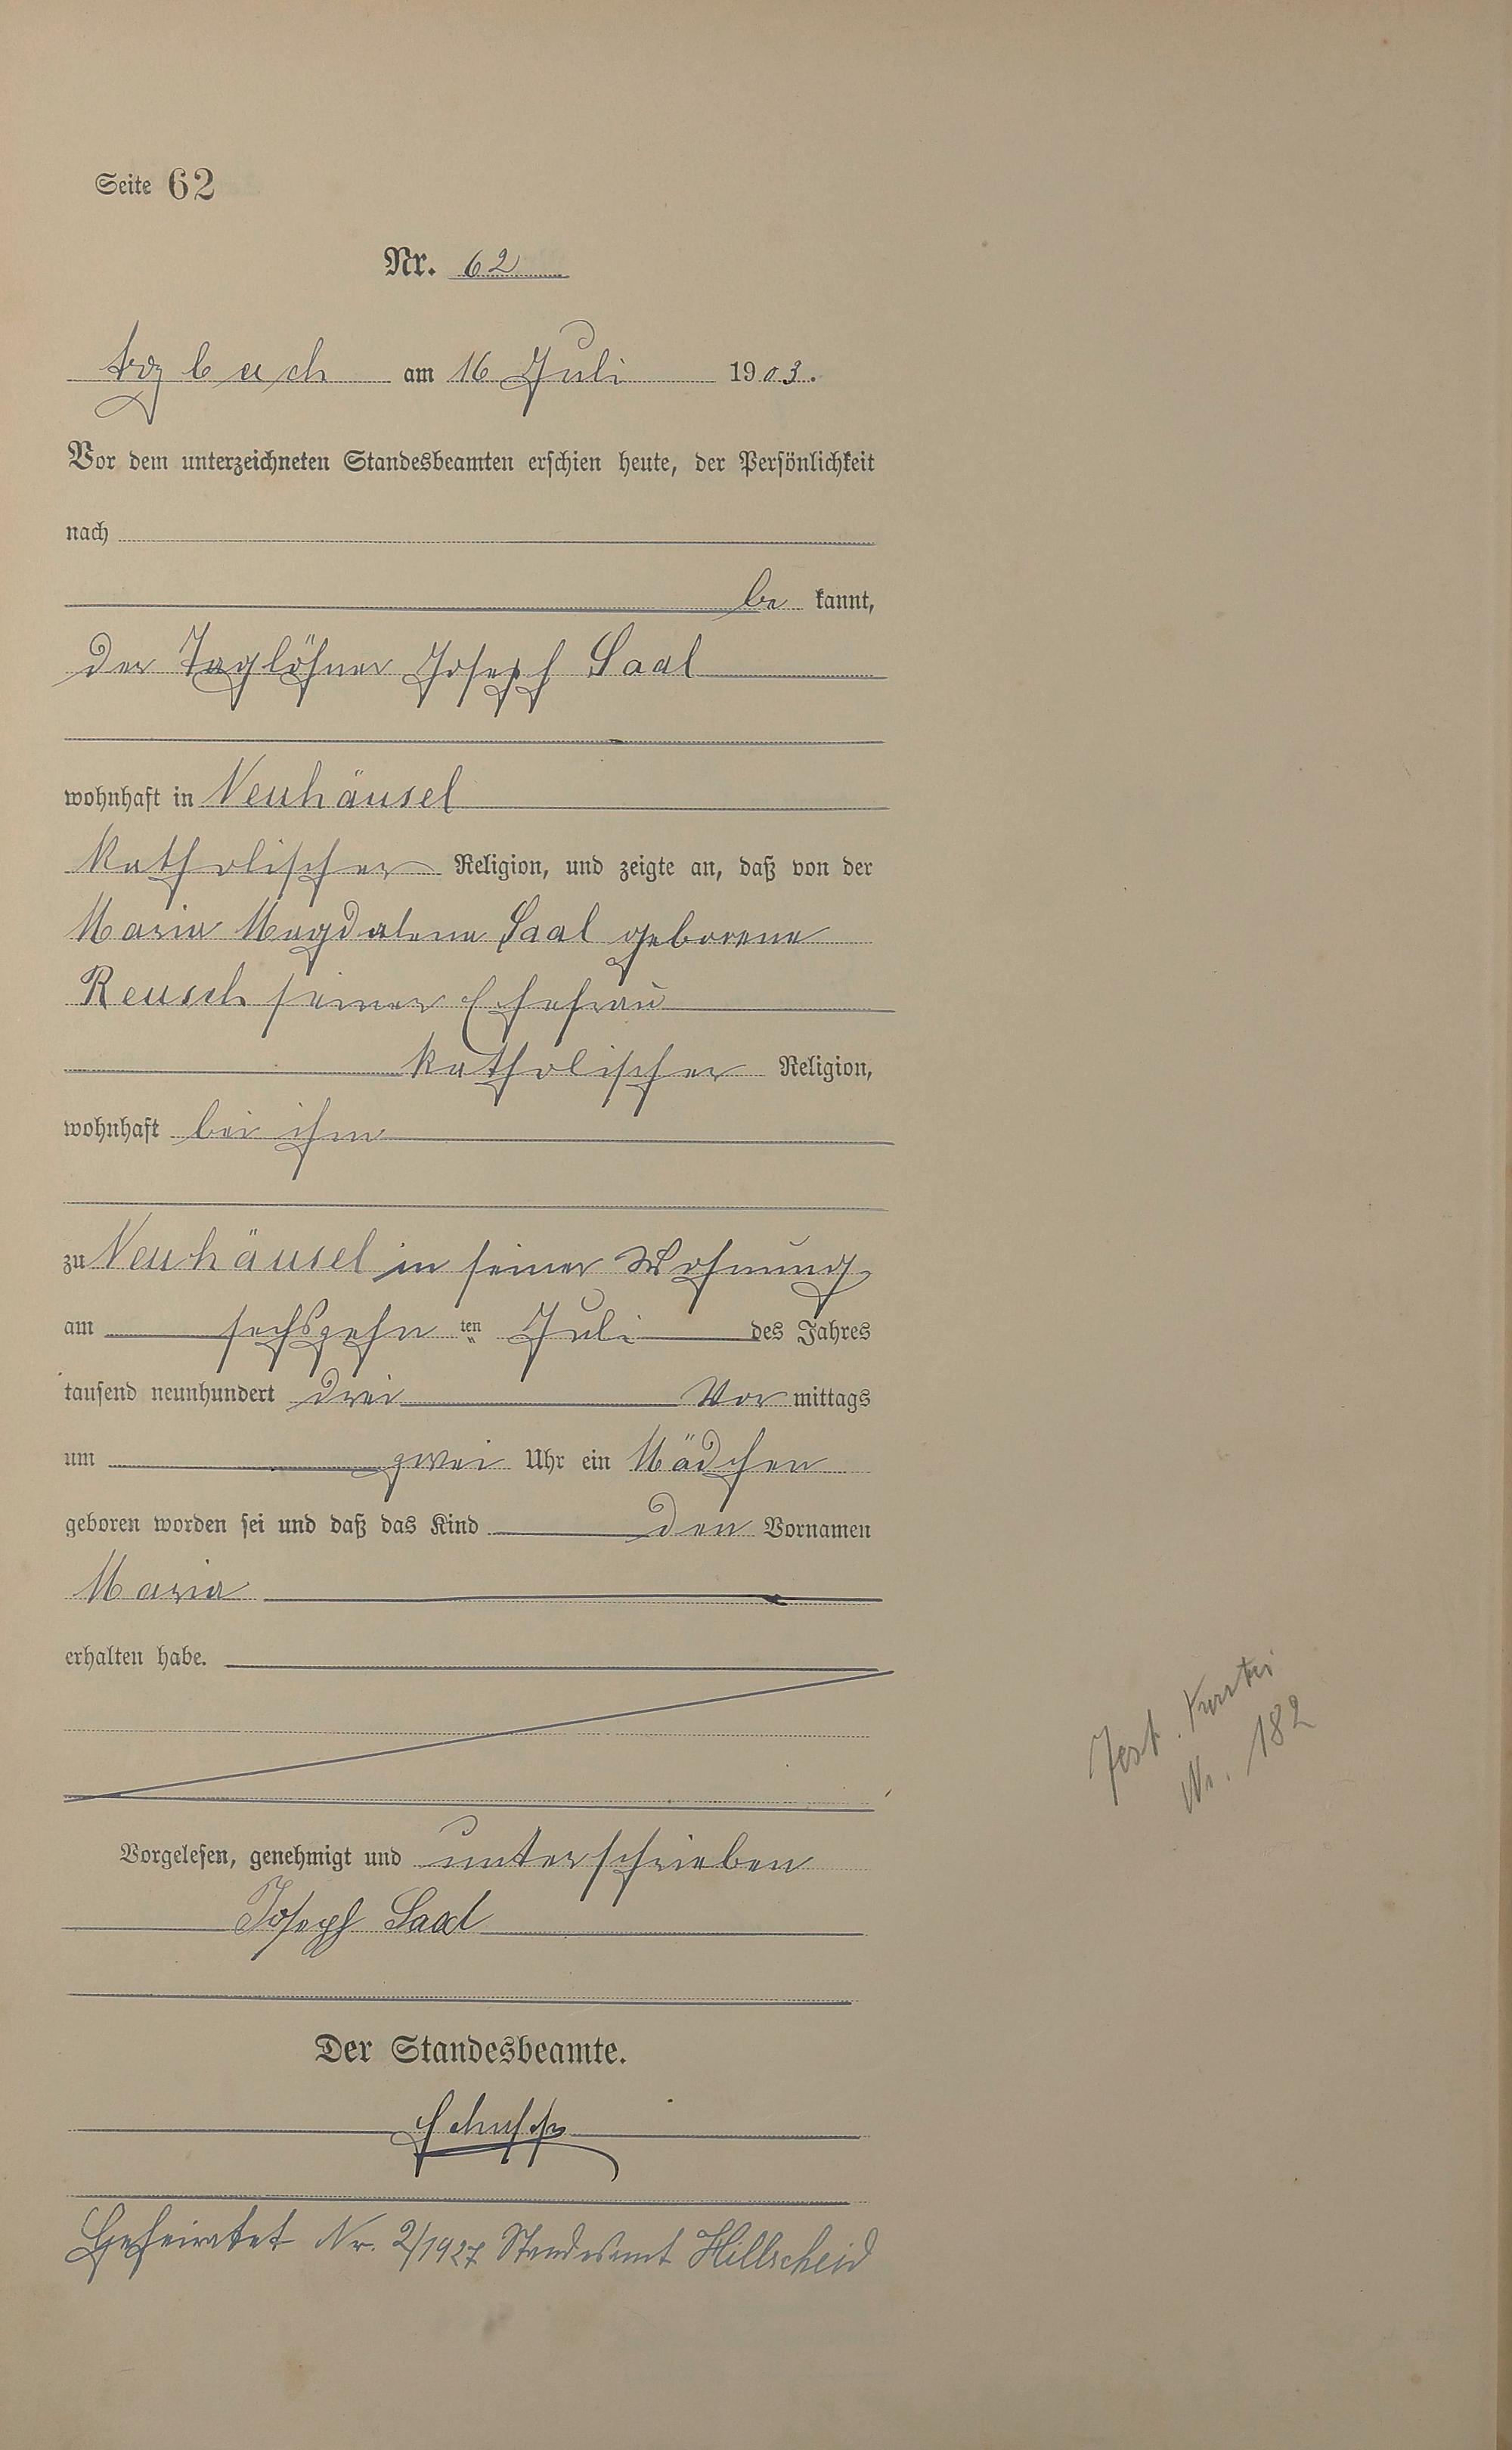 Seite 62
Nr. 62
Arzbach am 16 Juli 1903.
Vor dem unterzeichneten Standesbeamten erschien heute, der Persönlichkeit
nach
be kannt,
der Taglöhner Joseph Saal
wohnhaft in Neuhäusel
katholischer Religion, und zeigte an, daß von der
Maria Magdalena Saal geborene
Reusch seiner Ehefrau
katholischer Religion,
wohnhaft bei ihm
zu Neuhäusel in seiner Wohnung
am sechszehn ten Juli des Jahres
tausend neunhundert drei Vor mittags
um zwei Uhr ein Mädchen
geboren worden sei und daß das Kind den Vornamen
Maria
erhalten habe.
Test. Kartei
Nr. 182
Vorgelesen, genehmigt und unterschrieben
Joseph Saal
Der Standesbeamte.
Geheiratet Nr. 2/1927 Standesamt Hillscheid